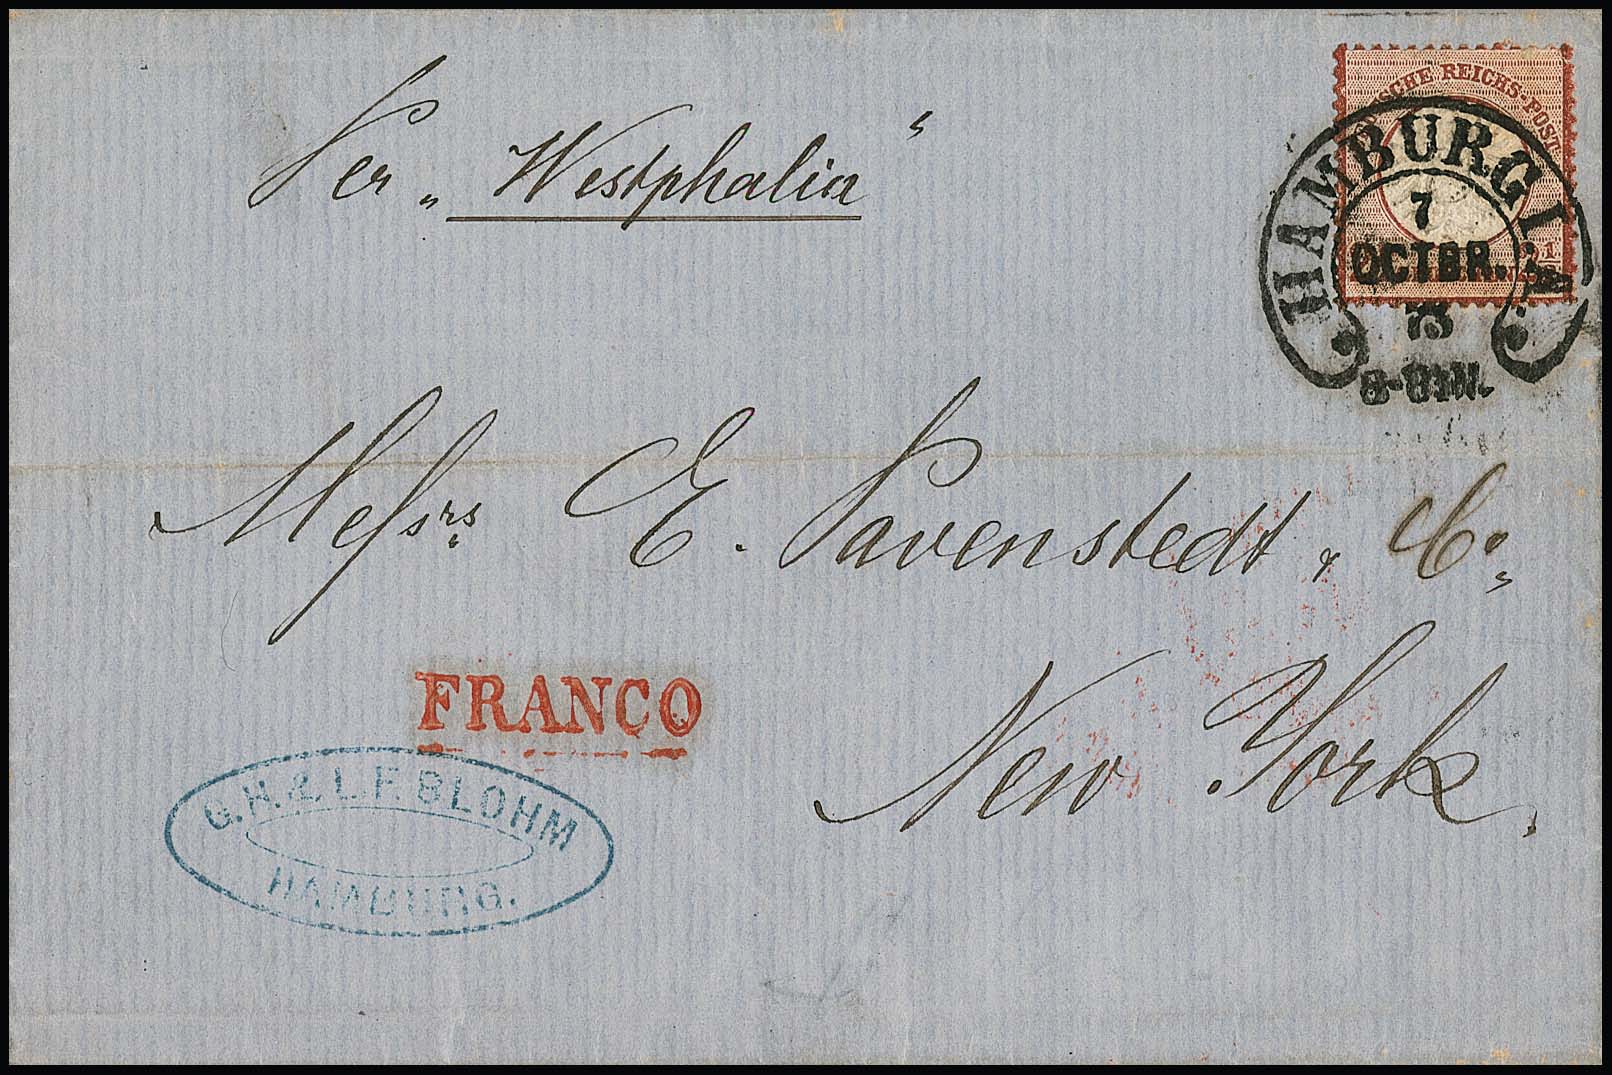 Per „Westphalia“
DEUTSCHE REICHS-POST
HAMBURG I.A.
7
OCTBR.
73
8-9 N.
Messrs. E. Pavenstedt & Co.,
New York.
FRANCO
G.H. & L.F. BLOHM
HAMBURG.